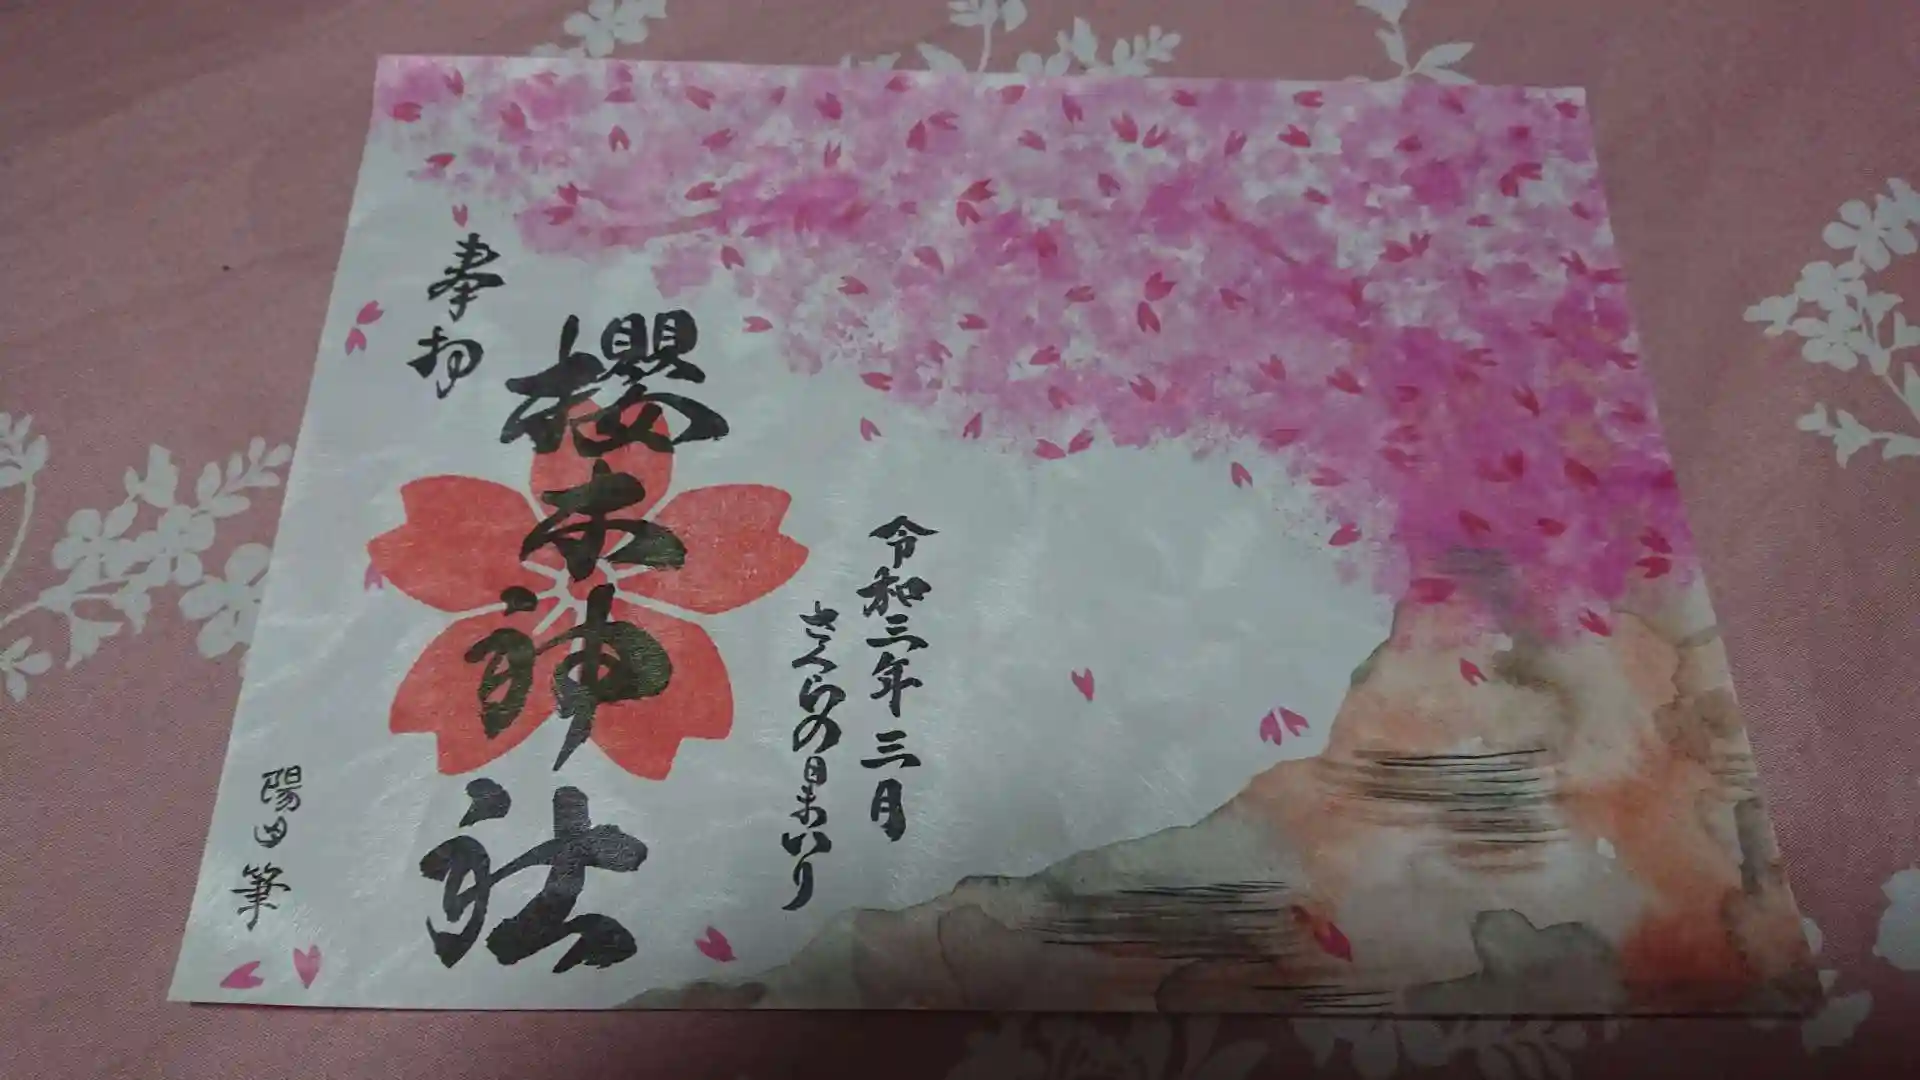 令和三年三月
さくらの日まいり
櫻木神社
奉拝
陽 筆